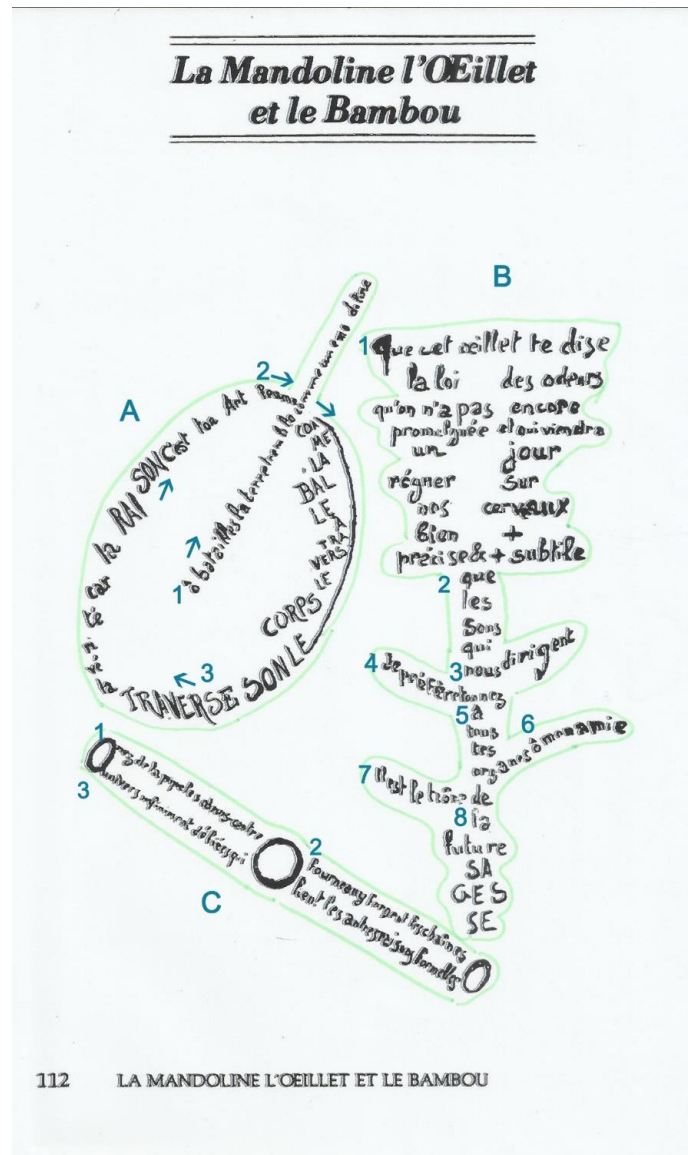 La Mandoline l'Œillet
et le Bambou
A
1 ô batailles la terre tremble comme une mandoline
2
COM
ME
LA
BAL
LE
À TRA
VERS
LE
CORPS
LE
SON
TRAVERSE
3
la vérité car la RAISON c'est ton Art Femme
B
1 que cet œillet te dise
la loi des odeurs
qu'on n'a pas encore
promulguée et qui viendra
un jour
régner sur
nos cerveaux
bien +
précise & + subtile
2 que
les
sons
qui
3 nous dirigent
4 Je préfère ton nez
5 à
tous
tes
organes 6 ô mon amie
7 Il est le trône de
8 la
future
SA
GES
SE
C
1 O nez de la pipe les odeurs-centre
2 fourneau y forgent les chaînes
3 univers infiniment déliées qui
lient les autres raisons formelles
112 LA MANDOLINE L'ŒILLET ET LE BAMBOU